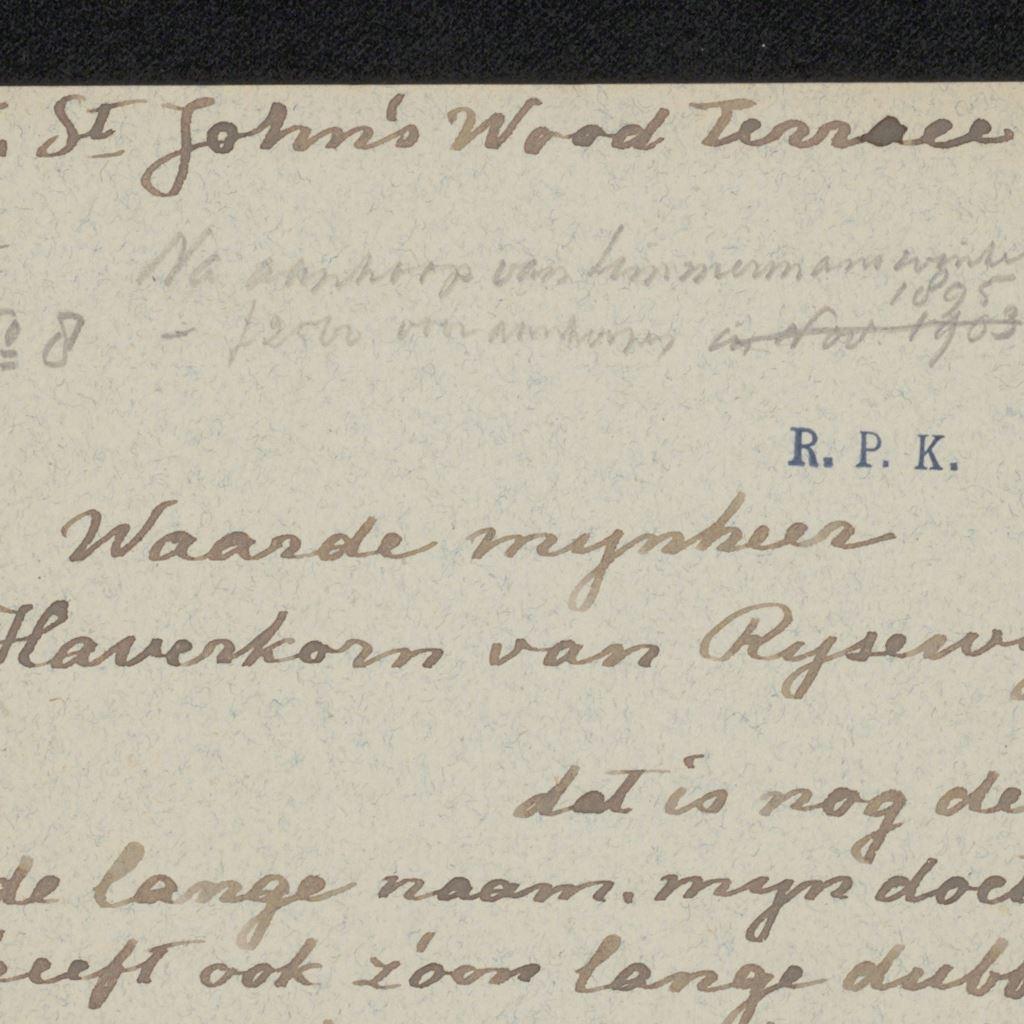 St John's Wood Terrace
Na aankoop van
1895
8 - in Nov 1903
R. P. K.
Waarde mynheer
Haverkorn van Rysewy
dat is nog de
de lange naam. myn doch
eeft ook zóón lange dubb